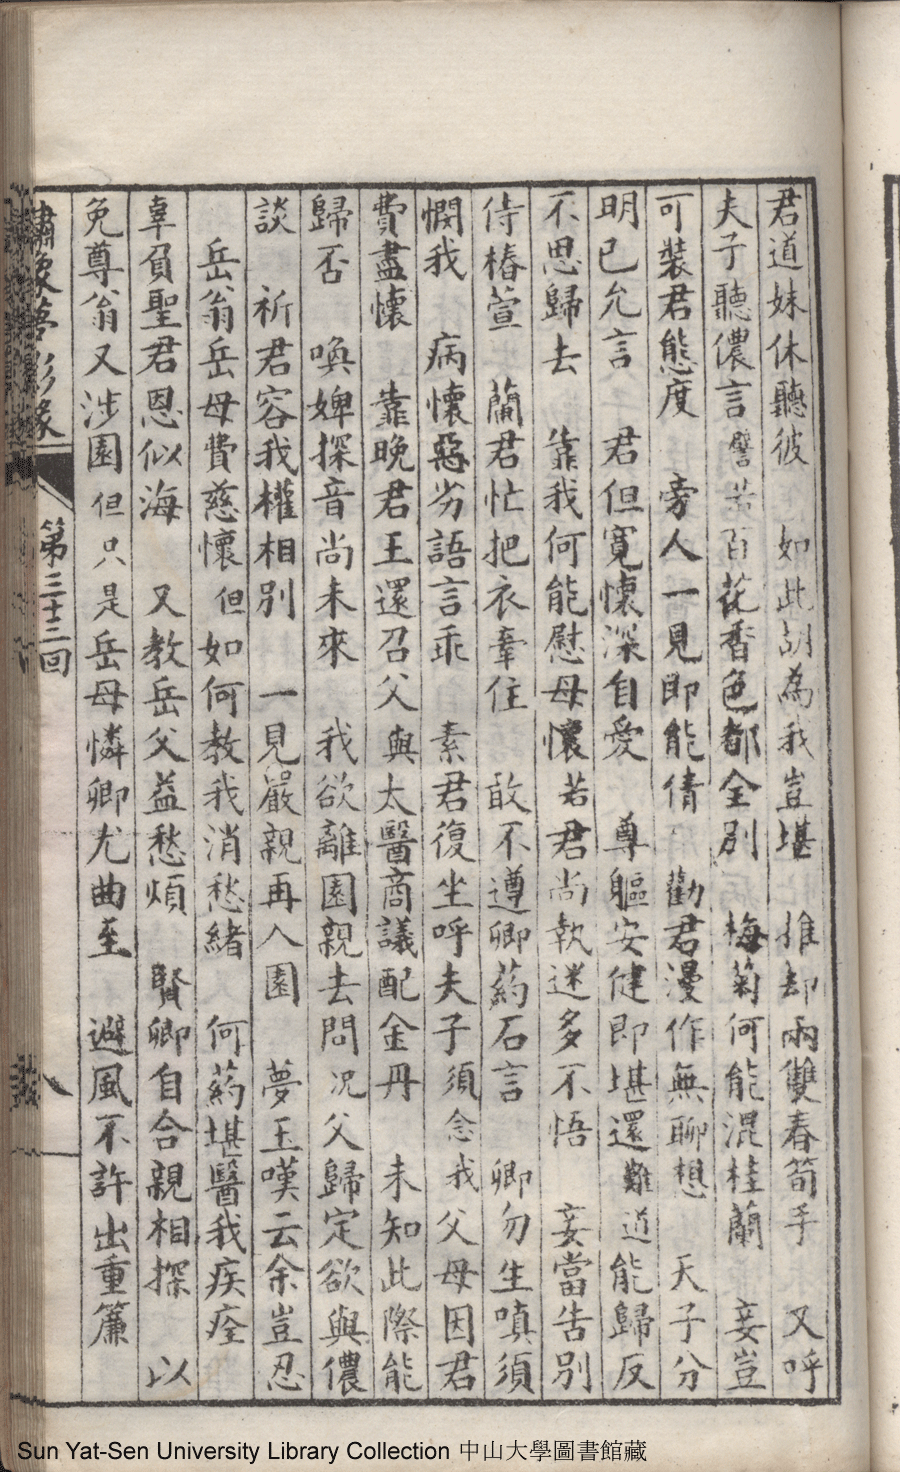 君道妹休聽彼　如此胡為我豈堪　推却兩雙春筍手　又呼
夫子聽儂言譬若百花香色都全別　梅菊何能混桂蘭　妾豈
可裝君態度　旁人一見即能倩　勸君漫作無聊想　天子分
明已允言　君但寬懷深自愛　尊軀安健即堪還難道能歸反
不思歸去　靠我何能慰母懷若君尚執迷多不悟　妾當告別
侍椿萱　蘭君忙把衣牽住　敢不遵卿葯石言　卿勿生嗔須
憫我　病懷惡劣語言乖　素君復坐呼夫子須念我父母因君
費盡懷　靠晚君王還召父與太醫商議配金丹　未知此際能
歸否　喚婢探音尚未來　我欲離園親去問况父歸定欲與儂
談　祈君容我權相別　一見嚴親再入園　夢玉嘆云余豈忍
岳翁岳母費慈懷但如何教我消愁緒　何葯堪醫我疾痊
辜負聖君恩似海　又教岳父益愁煩　賢卿自合親相探　以
免尊翁又涉園但只是岳母憐卿尤曲至　避風不許出重簾
第三十三回
八
Sun Yat-Sen University Library Collection 中山大學圖書館藏